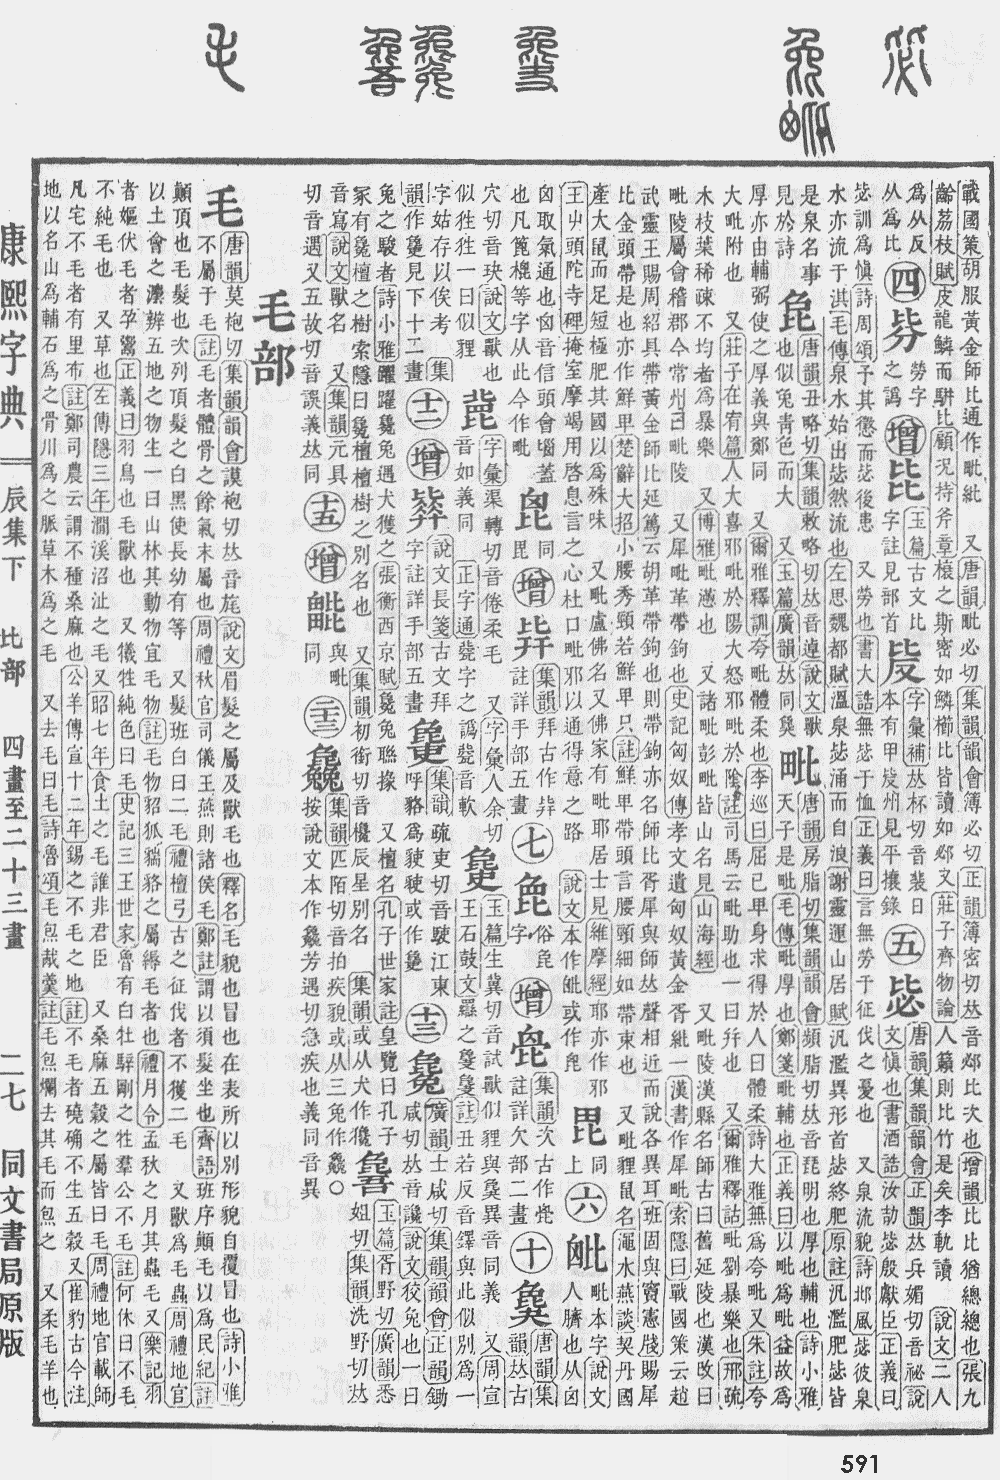 戰國策胡服黃金師比通作毗紕 又唐韻毗必切集韻韻會簿必切正韻簿密切𠀤音邲比次也增韻比比猶總總也張九
齡荔枝賦皮龍鱗而駢比顧況持斧章榱之斯密如鱗櫛比皆讀如邲又莊子齊物論人籟則比竹是矣李軌讀 說文二人
為从反
从為比
四
勞字
之譌
增
玉篇古文比
字註見部首
字彙補𠀤杯切音裴日
本有甲斐州見平攘錄
五
毖
唐韻集韻韻會正韻𠀤兵媚切音祕說
文慎也書酒誥汝劼毖殷獻臣正義曰
毖訓為慎詩周頌予其懲而毖後患 又勞也書大誥無毖于恤正義曰言無勞于征伐之憂也 又泉流貌詩邶風毖彼泉
水亦流于淇毛傳泉水始出毖然流也左思魏都賦溫泉毖涌而自浪謝靈運山居賦汎濫異形首毖終肥原註汎濫肥毖皆
是泉名事
見於詩
㲋
唐韻丑略切集韻敕略切𠀤音逴說文獸
也似兔靑色而大 又玉篇廣韻𠀤同㚟
毗
唐韻房脂切集韻韻會頻脂切𠀤音琵明也厚也輔也詩小雅
天子是毗毛傳毗厚也鄭箋毗輔也正義曰以毗為毗益故為
厚亦由輔弼使之厚義與鄭同 又爾雅釋訓夸毗體柔也李巡曰屈己卑身求得於人曰體柔詩大雅無為夸毗又朱註夸
大毗附也 又莊子在宥篇人大喜邪毗於陽大怒邪毗於陰註司馬云毗助也一曰幷也 又爾雅釋詁毗劉暴樂也邢疏
木枝葉稀疎不均者為暴樂 又博雅毗懣也 又諸毗彭毗皆山名見山海經 又毗陵漢縣名師古曰舊延陵也漢改曰
毗陵屬會稽郡今常州曰毗陵 又犀毗革帶鉤也史記匈奴傳孝文遺匈奴黃金胥紕一漢書作犀毗索隱曰戰國策云趙
武靈王賜周紹具帶黃金師比延篤云胡革帶鉤也則帶鉤亦名師比胥犀與師𠀤聲相近而說各異耳班固與竇憲牋賜犀
比金頭帶是也亦作鮮卑楚辭大招小腰秀頸若鮮卑只註鮮卑帶頭言腰頸細如帶束也 又毗狸鼠名澠水燕談契丹國
產大鼠而足短極肥其國以為殊味 又毗盧佛名又佛家有毗耶居士見維摩經耶亦作邪
毘
同
上
六
毗本字說文
人臍也从囟
王屮頭陀寺碑掩室摩竭用啓息言之心杜口毗邪以通得意之路 說文本作𣬈或作𣬉
囟取氣通也囟音信頭會惱蓋
也凡篦榥等字从此今作毗
同
毘
增
集韻拜古作𢱭
註詳手部五畫
七
俗㲋
字
增
集韻次古作㲋
註詳欠部二畫
十
㚟
唐韻集
韻𠀤古
穴切音玦說文獸也
似牲牲一曰似貍
字彙渠轉切音倦柔毛 又字彙人余切
音如義同 正字通㲋字之譌㲋音軟
玉篇生冀切音試獸似貍與㚟異音同義 又周宣
王石鼓文𤣾之㚟㚟註丑若反音鐸與此似別為一
字姑存以俟考 集
韻作㚟見下十二畫
十二
增
說文長箋古文拜
字註詳手部五畫
集韻疏吏切音駛江東
呼貉為駛駛或作㚟
十三
毚
廣韻士咸切集韻韻會正韻鋤
咸切𠀤音讒說文狡兔也一曰
兔之駿者詩小雅躍躍毚兔遇犬獲之張衡西京賦毚兔聯猭 又檀名孔子世家註皇覽曰孔子
冢有毚檀之樹索隱曰毚檀檀樹之別名也 又集韻初銜切音欃辰星別名 集韻或从犬作
玉篇胥野切廣韻悉
姐切集韻洗野切𠀤
音寫說文獸名 又集韻元具
切音遇又五故切音誤義𠀤同
十五
增
與毗
同
二十三
集韻匹陌切音拍疾貌或从三兔作鱻○
按說文本作鱻芳遇切急疾也義同音異
毛部
毛
唐韻莫袍切集韻韻會謨袍切𠀤音旄說文眉髮之屬及獸毛也釋名毛貌也冒也在表所以別形貌自覆冒也詩小雅
不屬于毛註毛者體骨之餘氣末屬也周禮秋官司儀王燕則諸侯毛鄭註謂以須髮坐也齊語班序顚毛以為民紀註
顚頂也毛髮也次列頂髮之白黑使長幼有等 又髮班白曰二毛禮檀弓古之征伐者不獲二毛 又獸為毛蟲周禮地官
以土會之灋辨五地之物生一曰山林其動物宜毛物註毛物貂狐貒貉之屬縟毛者也禮月令孟秋之月其蟲毛又樂記羽
者嫗伏毛者孕鬻正義曰羽鳥也毛獸也 又犧牲純色曰毛史記三王世家魯有白牡騂剛之牲羣公不毛註何休曰不毛
不純毛也 又草也左傳隱三年澗溪沼沚之毛又昭七年食土之毛誰非君臣 又桑麻五穀之屬皆曰毛周禮地官載師
凡宅不毛者有里布註鄭司農云謂不種桑麻也公羊傳宣十二年錫之不毛之地註不毛者磽确不生五穀又崔豹古今注
地以名山為輔石為之骨川為之脈草木為之毛 又去毛曰毛詩魯頌毛炰胾羹註毛炰爛去其毛而炰之 又柔毛羊也
康熙字典
辰集下 比部 四畫至二十三畫
二七 同文書局原版
591